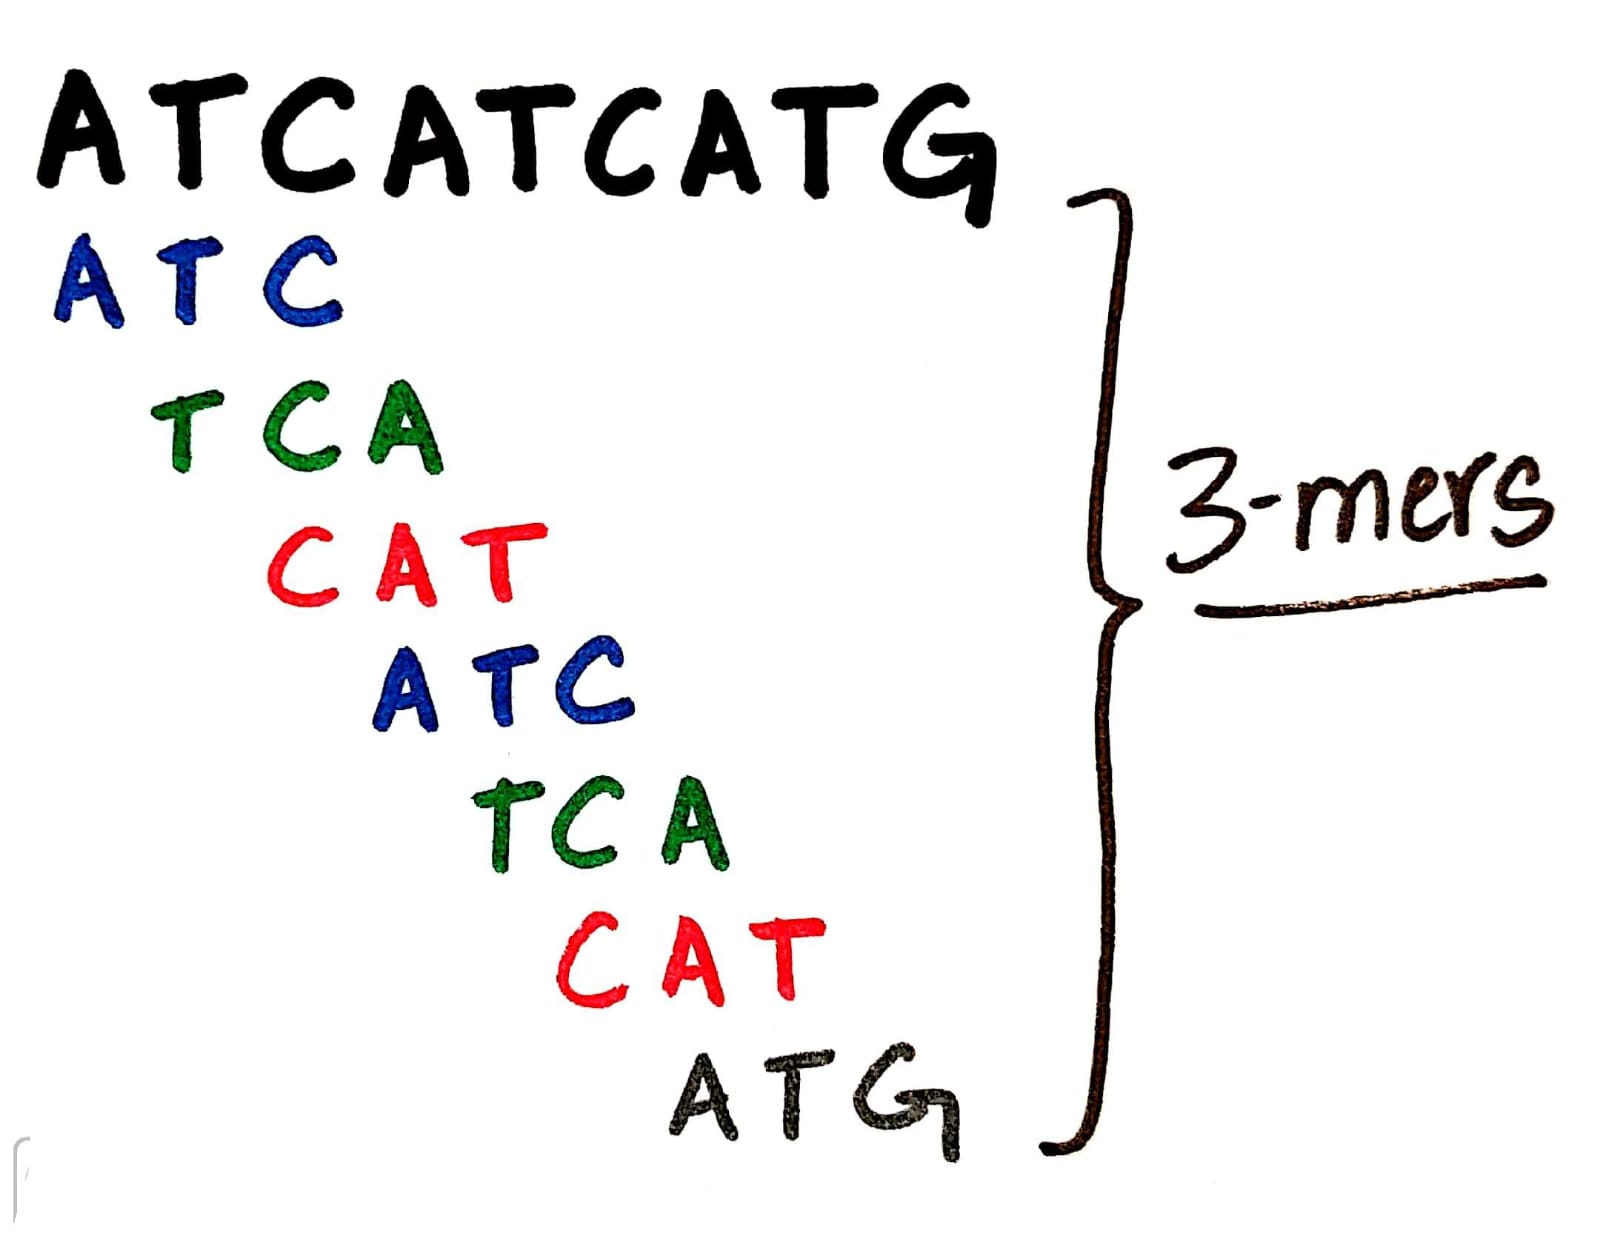 ATCATCATG
ATC
TCA
CAT
ATC
TCA
CAT
ATG
3-mers